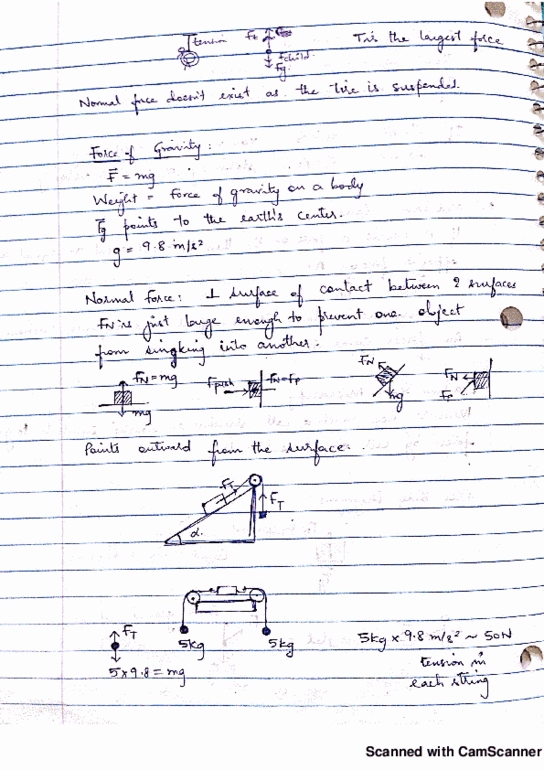 tension
T is the largest force
child
Fg
Normal force doesn't exist as the tire is suspended.
Force of Gravity:
F = mg
Weight = Force of gravity on a body
Fg points to the earth's center.
g = 9.8 m/s²
Normal Force: ⊥ surface of contact between 2 surfaces
FN is just large enough to prevent one object
from singking into another.
FN = mg
mg
Fpush
FN = FP
FN
mg
FN
FP
Points outward from the surface.
FT
FT
α
5kg
5kg
5kg × 9.8 m/s² ~ 50N
tension in
each string
FT
5 × 9.8 = mg
Scanned with CamScanner